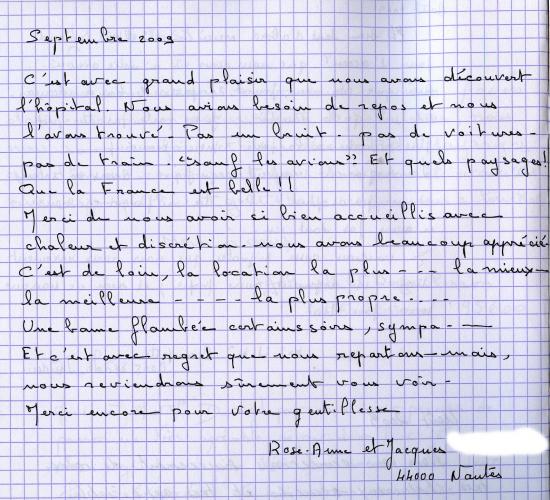 Septembre 2009
C'est avec grand plaisir que nous avons découvert
l'hôpital. Nous avions besoin de repos et nous
l'avons trouvé - Pas un bruit - pas de voitures -
pas de train. "sauf les avions" Et quels paysages!
Que la France est belle!!
Merci de nous avoir si bien accueillis avec
chaleur et discrétion - nous avons beaucoup apprécié
C'est de loin, la location la plus - - - la mieux -
la meilleure - - - - la plus propre ....
Une bonne flambée certains soirs, sympa - -
Et c'est avec regret que nous repartons - mais,
nous reviendrons sûrement vous voir -
Merci encore pour votre gentillesse
Rose-Anne et Jacques
44000 Nantes